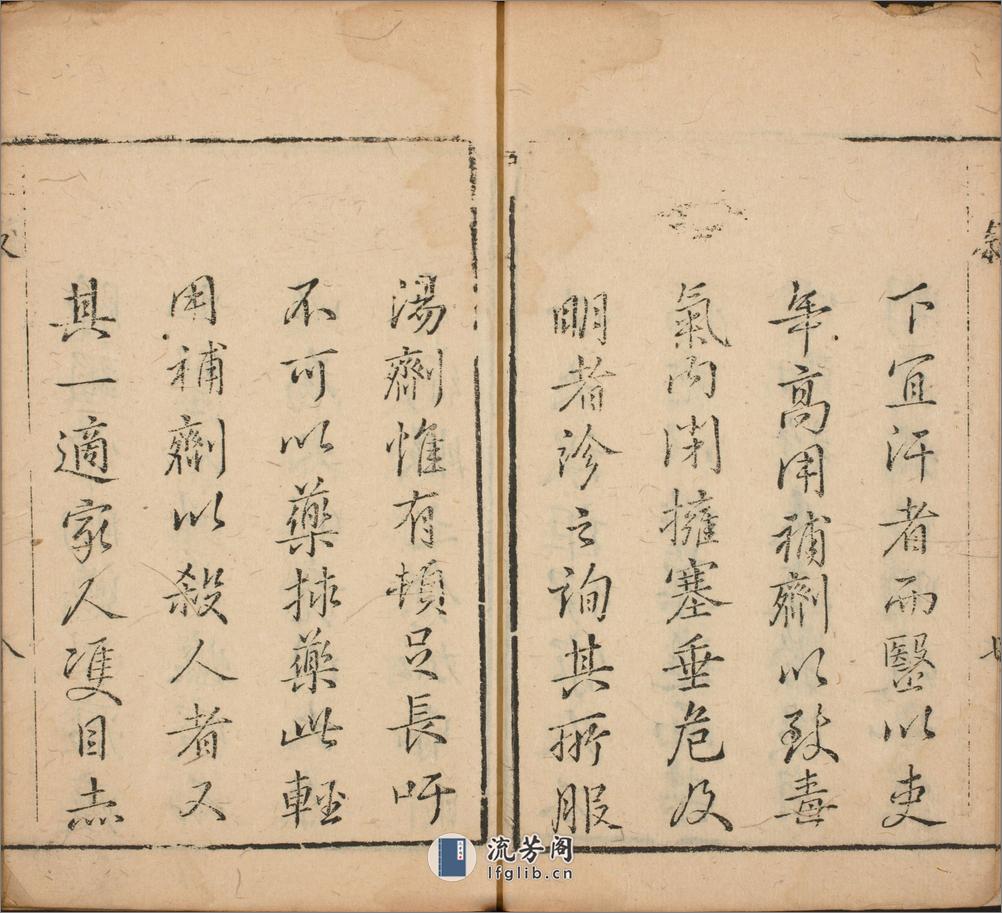 下宜汗者而醫以吏
年高用補劑以致毒
氣內閉擁塞垂危及
明者診之詢其所服
湯劑惟有頓足長吁
不可以藥捄藥此輕
用補劑以殺人者又
其一適家人雙目赤
流芳阁
lfglib.cn